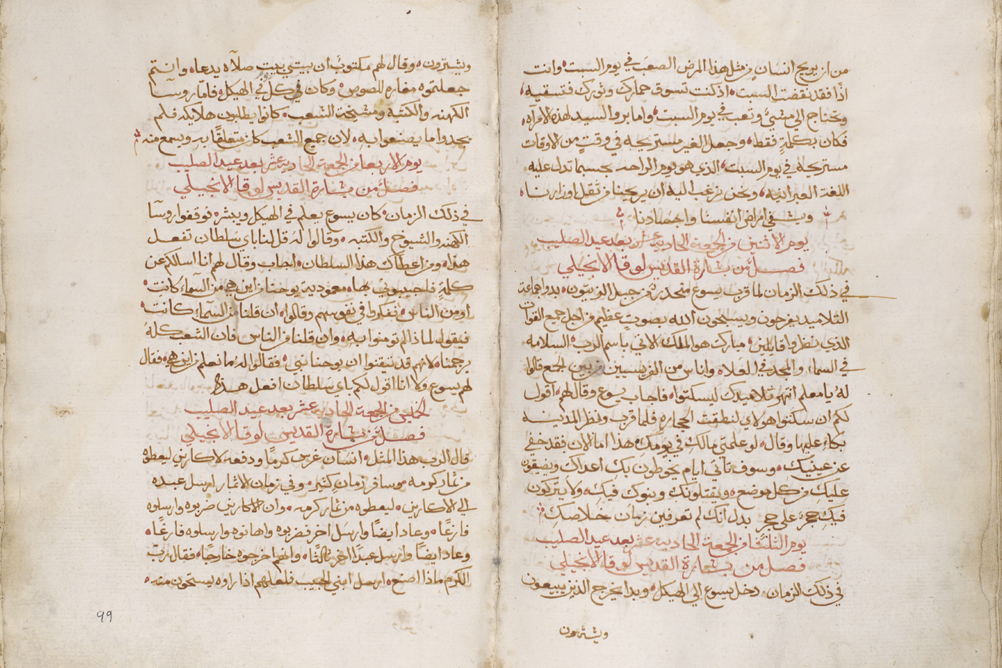 من ان يوبخ انسان من مثل هذا المرض الصعب في يوم السبت وانت
اذا فقد نقضت السبت اذ كنت تسوق حمارك وثورك فتسقيه
وتحتاج الى مشي وتعب في يوم السبت واما بر والسيد لهذه الامراه
فكان بكلمه فقط وجعل الغير مستريحه في وقت من الاوقات
مستريحه في يوم السبت الذي هو يوم الراحه بحسبما تدل عليه
اللغه العبرانيه ونحن نرغب اليه ان يريحنا من ثقل اوزارنا
ويشفي امراض انفسنا واجسادنا
يوم الاثنين من الجمعة الحاديه عشر بعد عيد الصليب
فصل من بشارة القديس لوقا الانجيلي
في ذلك الزمان لما قرب يسوع منحدر من جبل الزيتون بدا جماعة
التلاميد يفرحون ويسبحون الله بصوت عظيم من اجل جميع القوات
الذي نظروا قايلين مبارك هو الملك الاتي باسم الرب السلامه
في السماء والمجد في العلاء واناس من الفريسيين من بين الجمع قالوا
له يا معلم انتهر تلاميدك ليسكتوا فاجاب يسوع وقال لهم اقول
لكم ان سكتوا هولاي لنطقت الحجاره فلما قرب ونظر المدينه
بكا عليها وقال لو علمتي مالك في يومك هذا اما الان فقد خفي
عن عينيك وسوف تاتي ايام يحوطون بك اعداك ويضيقون
عليك من كل موضع ويقتلونك وبنوك فيك ولا يتركون
فيك حجر على حجر بدل انك لم تعرفين زمان خلاصك
يوم الثلثا من الجمعة الحاديه عشر بعد عيد الصليب
فصل من بشارة القديس لوقا الانجيلي
في ذلك الزمان دخل يسوع الى الهيكل وبدا يخرج الذين يبيعون
ويشترون
ويشترون وقال لهم مكتوب ان بيتي بيت صلاه يدعا وانتم
جعلتموه مغاره للصوص وكان في كل في الهيكل فاما روسا
الكهنه والكتبه ومشيخة الشعب كانوا يطلبون هلاكه فلم
يجدوا ما يصنعوا به لان جميع الشعب كان متعلقا به ويسمع منه
يوم الاربعا من الجمعة الحاديه عشر بعد عيد الصليب
فصل من بشارة القديس لوقا الانجيلي
في ذلك الزمان كان يسوع يعلم في الهيكل ويبشر فوقفوا روسا
الكهنه والشيوخ والكتبه وقالوا له قل لنا باي سلطان تفعل
هذا ومن اعطاك هذا السلطان اجاب وقال لهم انا اسالكم عن
كلمة فاجيبوني بها معمودية يوحنا من اين هي من السماء كانت
او من الناس ففكروا في نفوسهم وقالوا ان قلنا من السما كانت
فيقول لماذا لم تومنوا به وان قلنا من الناس فان الشعب كله
يرجمنا لانهم قد تيقنوا ان يوحنا نبي فقالوا له ما نعلم من اين هي فقال
لهم يسوع ولا انا اقول لكم باي سلطان افعل هذا
الخميس من الجمعة الحاديه عشر بعد عيد الصليب
فصل من بشارة القديس لوقا الانجيلي
قال الرب هذا المثل انسان غرس كرما ودفعه لاكارين ليعطوه
من ثمار كرمه وسافر زمان كثير وفي زمان الاثمار ارسل عبده
الى الاكارين ليعطوه من ثمار كرمه وان الاكارين ضربوه وارسلوه
فارغا وعاد ايضا وارسل اخر فضربوه واهانوه وارسلوه فارغا
وعاد ايضا وارسل عبدا اخر ثالثا وانهم اخرجوه خارجا فقال رب
الكرم ماذا اصنع ارسل ابني الحبيب فلعلهم اذا راوه يستحون منه
99